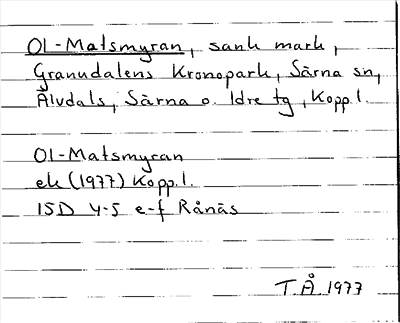 Ol-Matsmyran, sank mark,
Granudalens Kronopark, Särna sn,
Älvdals, Särna o. Idre tg, Kopp.l.
Ol-Matsmyran
ek (1977) Kopp.l.
15D 4-5 e-f Rånäs
T.Å. 1977